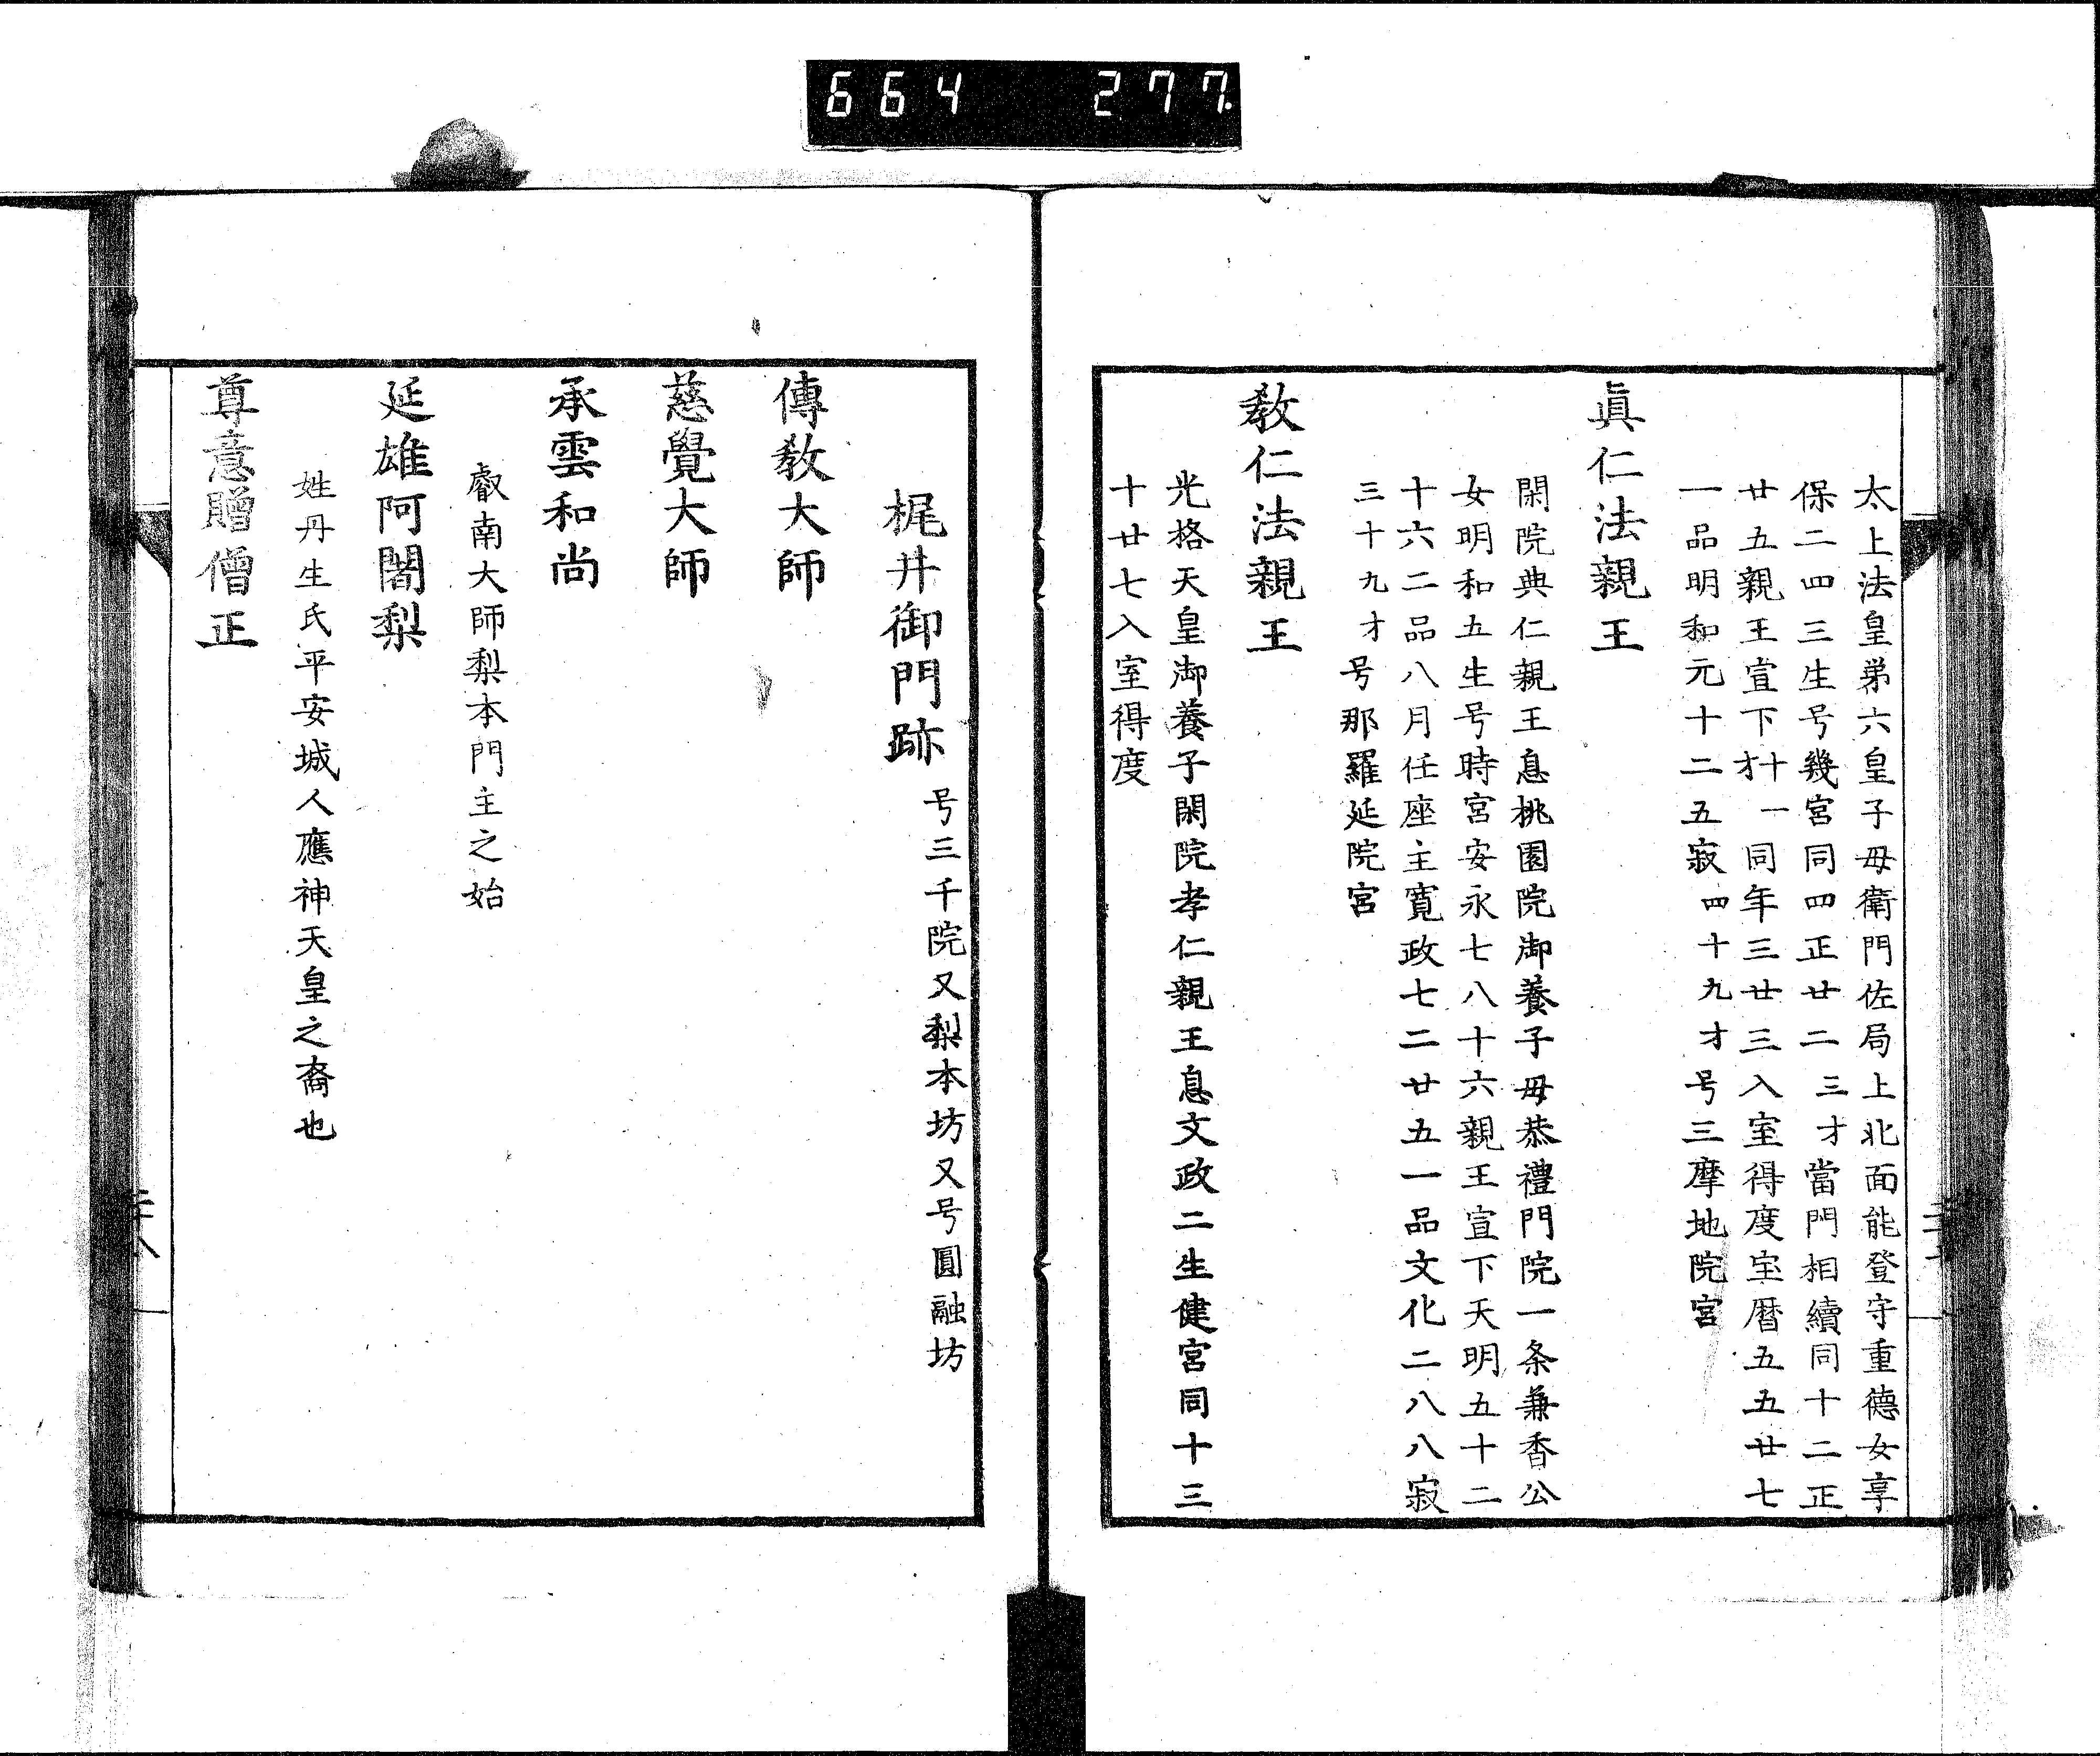 664 277.
太上法皇弟六皇子母衛門佐局上北面能登守重德女享
保二四三生号幾宮同四正廿二三才當門相續同十二正
廿五親王宣下十一才同年三廿三入室得度宝暦五五廿七
一品明和元十二五寂四十九才号三摩地院宮
眞仁法親王
閑院典仁親王息桃園院御養子母恭禮門院一条兼香公
女明和五生号時宮安永七八十六親王宣下天明五十二
十六二品八月任座主寛政七二廿五一品文化二八八寂
三十九才号那羅延院宮
敎仁法親王
光格天皇御養子閑院孝仁親王息文政二生健宮同十三
十廿七入室得度
梶井御門跡号三千院又梨本坊又号圓融坊
傳敎大師
慈覺大師
承雲和尚
叡南大師梨本門主之始
延雄阿闍梨
姓丹生氏平安城人應神天皇之裔也
尊意贈僧正